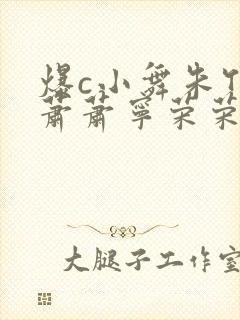 爆c小舞朱竹
萧萧宁荣荣
大腿子工作室